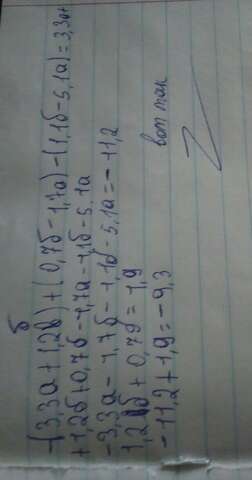 б
-(3,3а+1,2б)+(0,7б-1,7а)-(1,1б-5,1а)=3,3а+
+1,2б+0,7б-1,7а-1,1б-5,1а
-3,3а-1,7б-1,1б-5,1а=-11,2
1,2б+0,7б=1,9
-11,2+1,9=-9,3 вот так